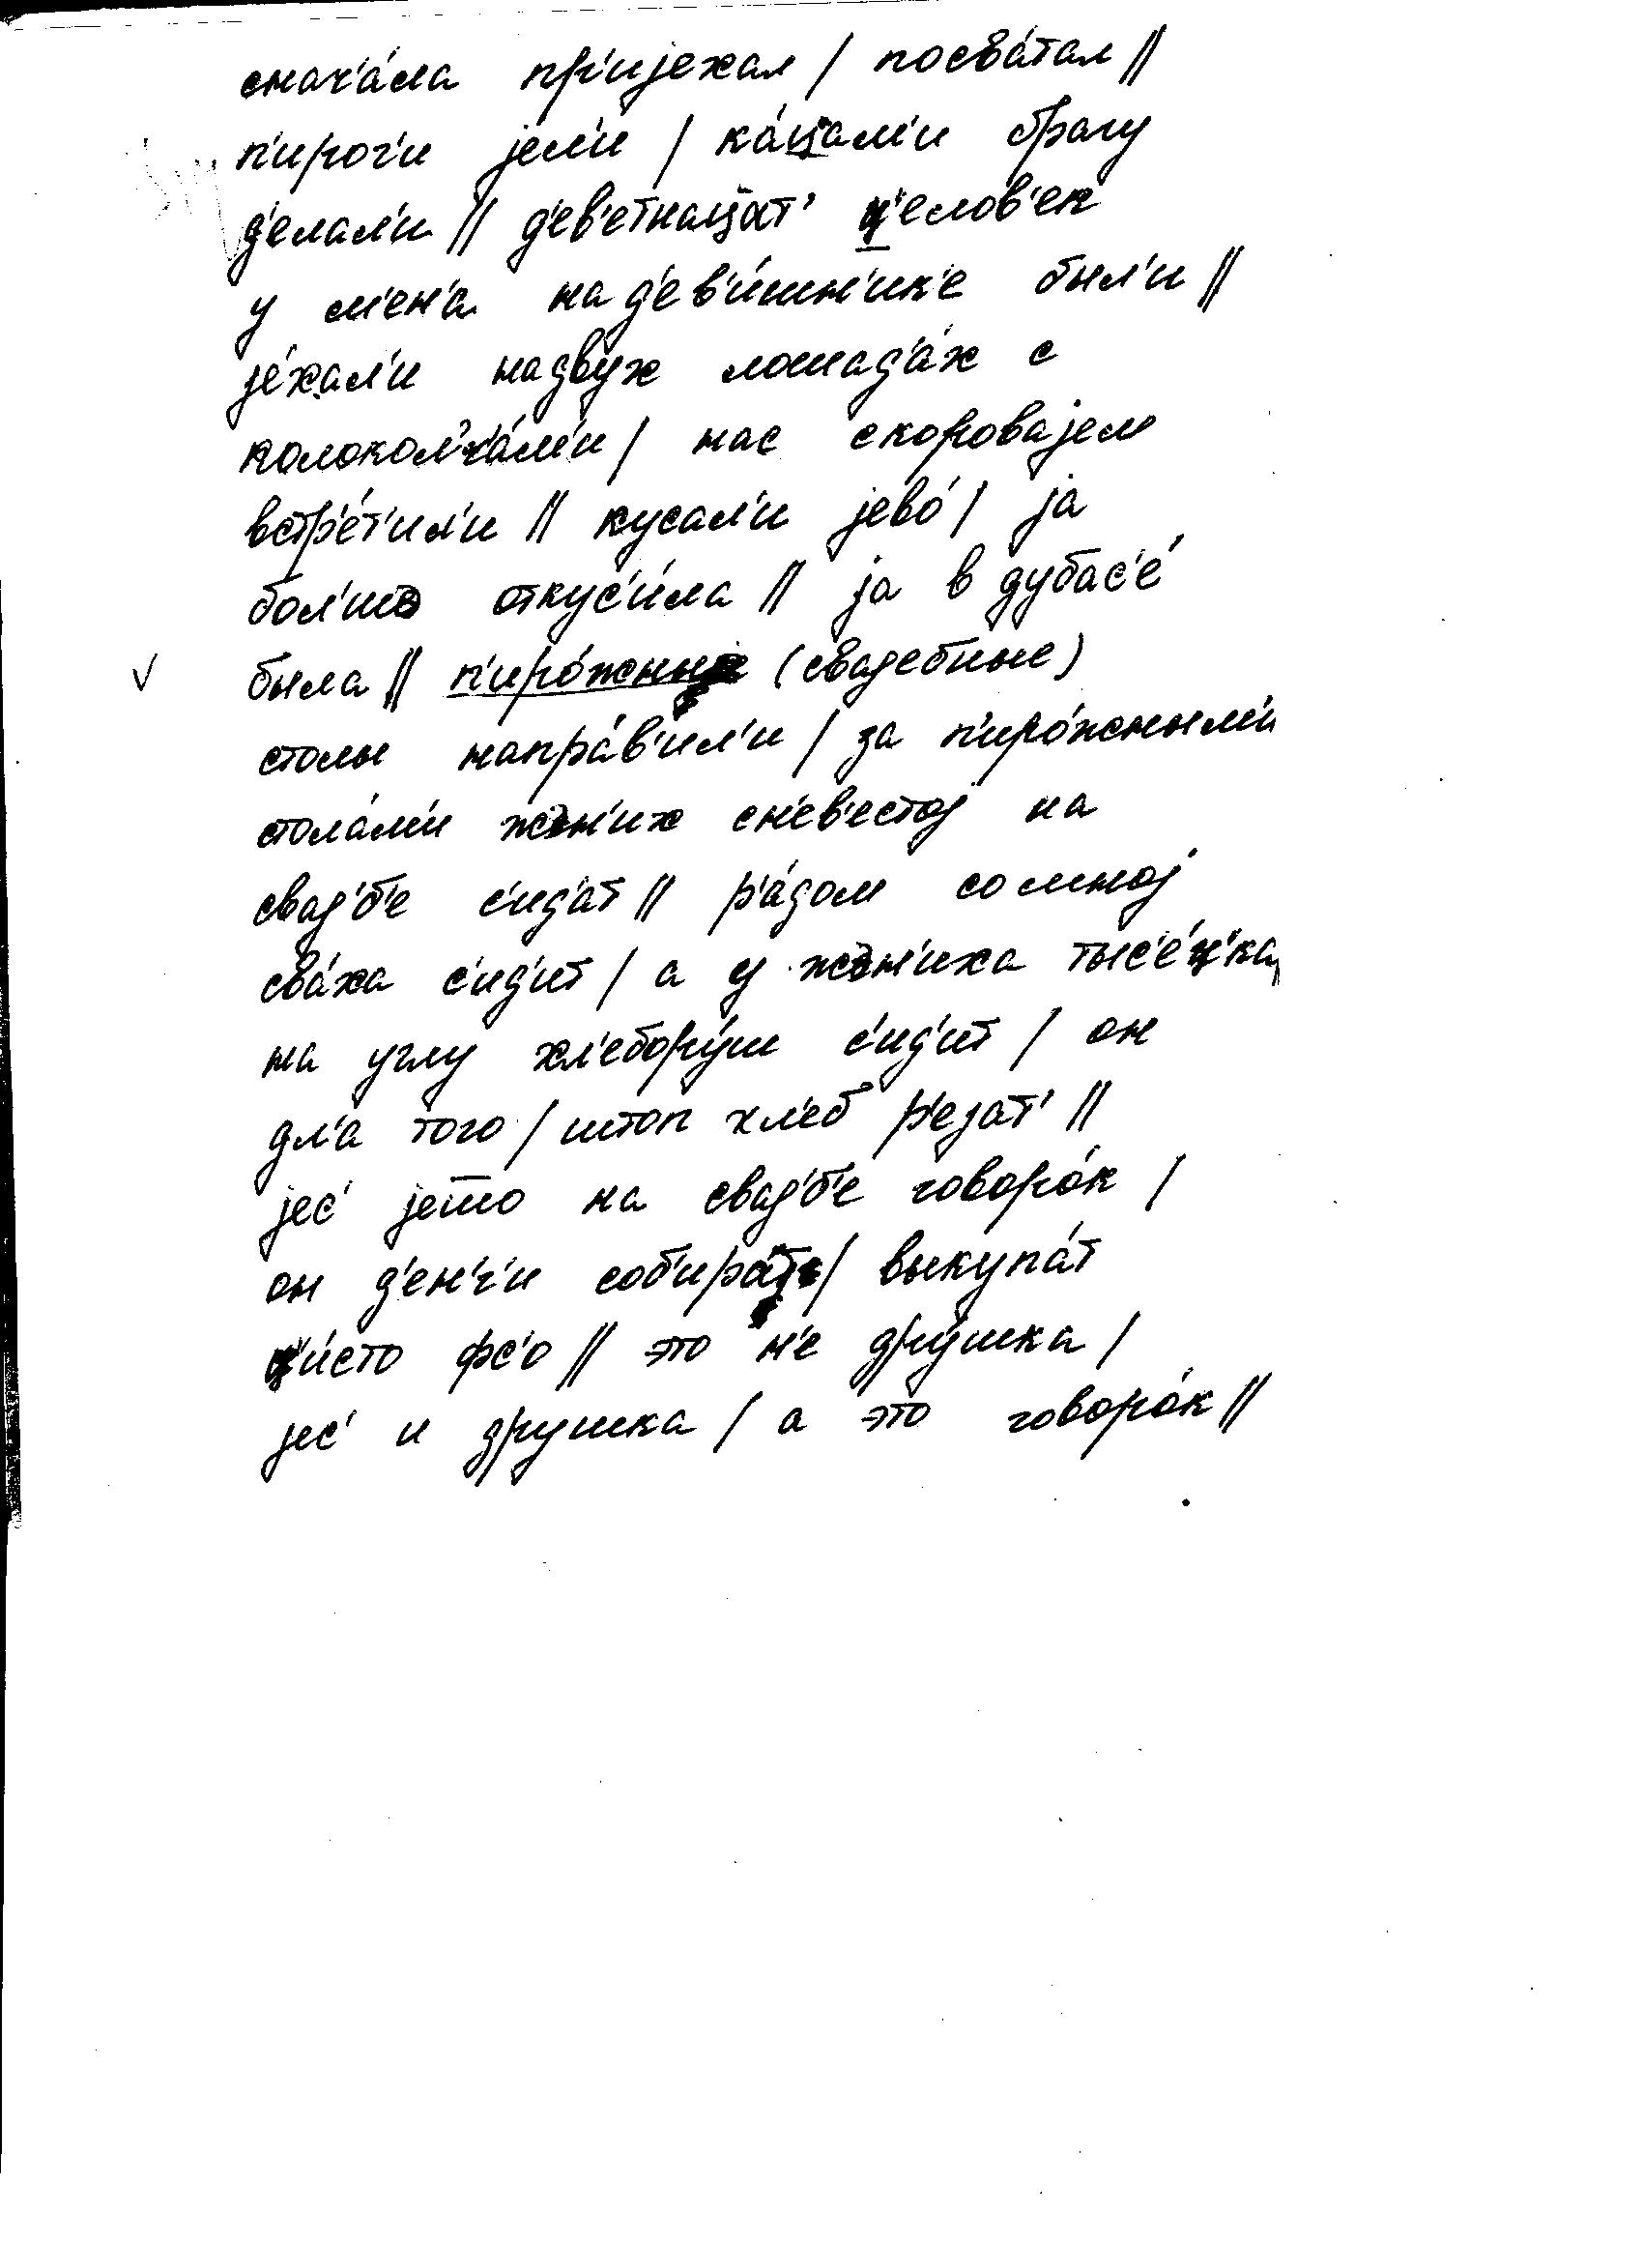 снач'а́ла пр'ијехал / посва́тал //
п'ирог'и јел'и / ка́цал'и брагу
д'елал'и // д'ев'етнацат' ц'елов'ек
у м'ен'а на д'ев'и́шн'ик'е был'и //
је́хал'и надвух лошад'а́х с
колокол'ч'а́м'и / нас скоровајем
встр'е́т'ил'и // кусал'и јево́ / ја
бол'шэ откус'и́ла // ја в дубас'е́
была // п'иро́жныје (свадебные)
столы напра́в'ил'и / за п'иро́жным'и
стола́м'и жэн'их сн'ев'естој на
свад'б'е с'ид'ат // р'а́дом со мној
сва́ха с'ид'ит / а у жэн'иха тыс'е́ц'ка,
на углу хл'ебору́ш с'ид'ит / он
дл'а того / штоп хл'еб р'езат' //
јес' јешо на свад'б'е говоро́к /
он д'ен'г'и соб'ира́т / выкупа́т
ц'и́сто фс'о // это н'е дру́шка /
јес' и друшка / а это говоро́к //